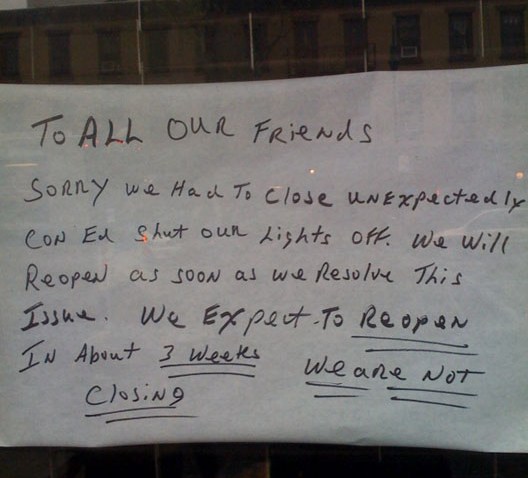 To ALL OUR FRiends
SORRY we Had To Close UNExpectedly
CON Ed Shut our Lights Off. We Will
Reopen as soon as we Resolve This
Issue. We Expect To Reopen
IN About 3 Weeks We are Not
Closing